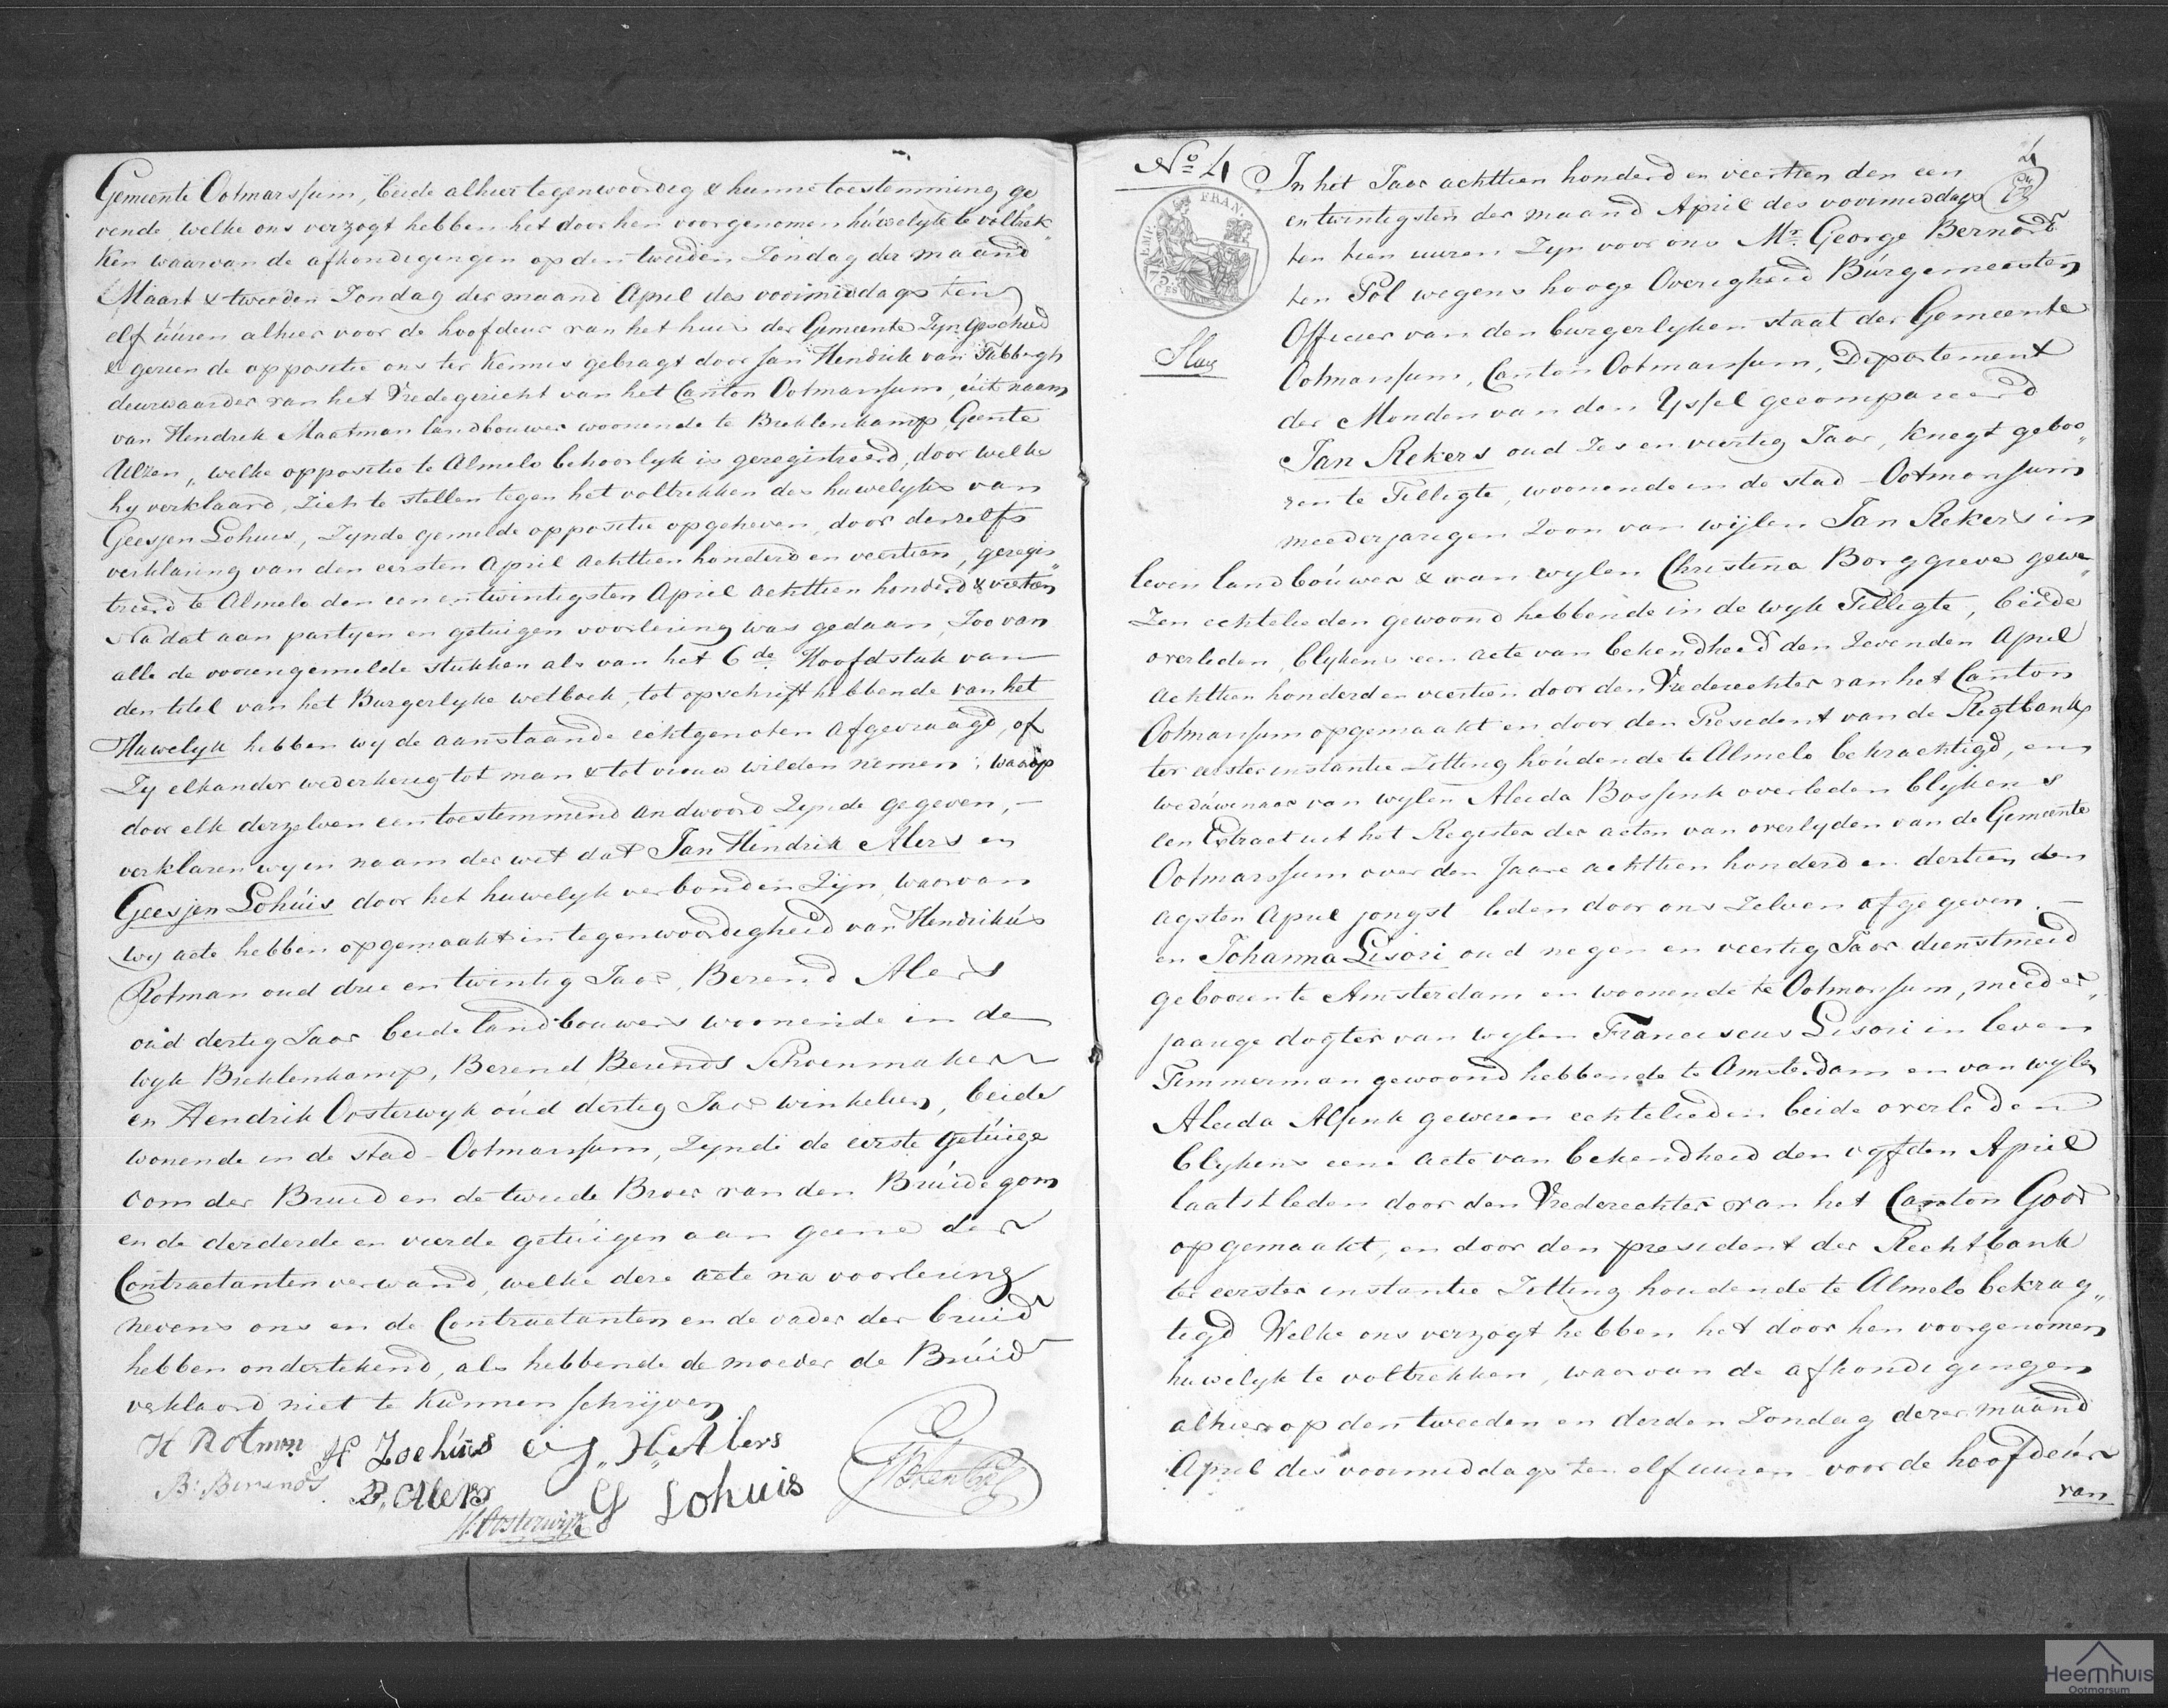 Gemeente Ootmarssum, beide alhier tegenwoordig & hunne toestemming ge
vende, welke ons verzogt hebben het door hen voorgenomen húwelijk te voltrek„
ken waarvan de afkondigingen op den tweeden Zondag der maand
Maart & tweeden Zondag der maand April des voormiddags ten
elf úúren alhier voor de hoofdeur van het huis der Gemeente Zyn geschied
& gezien de oppositie ons ter kennis gebragt door Jan Hendrik van
deurwaarder van het Vredegericht van het Canton Ootmarssum, úit naam
van Hendrik Maatman landbouwer woonende te Breklenkamp, Gemeente
Ulzen, welke oppositie te Almelo behoorlyk is geregistreerd, door welke
hy verklaard, Zich te stellen tegen het voltrekken des huwelijks van
Geesjen Lohuis, Zynde gemelde oppositie opgeheven, door derzelfs
verklaring van den eersten April achttien honderd en veertien, geregis„
treerd te Almelo den een en twintigsten April achttien honderd & veertien
Na dat aan partyen en getuigen voorlezing was gedaan, Zoo van
alle de voorengemelde stukken als van het 6de Hoofdstuk van
den titel van het Burgerlyke wetboek, tot opschrift hebbende van het
Huwelyk hebben wy de aanstaande echtgenoten afgevraagd, of
Zy elkander wederkerig tot man & tot vrouw wilden nemen; waarop
door elk derzelven een toestemmend andwoord Zynde gegeven, –
verklaren wy in naam der wet dat Jan Hendrik Alers en
Geesjen Lohúis door het huwelyk verbonden Zijn, waarvan
wy acte hebben opgemaakt in tegenwoordigheid van Hendrikús
Rotman oud drie en twintig Jaar, Berend Alers
oúd dertig Jaar beide landbouwers woonende in de
wyk Breklenkamp, Berend Berends Schoenmaker
en Hendrik Oosterwyk oúd dertig Jaar winkelier, beide
wonende in de stad Ootmarssum, Zynde de eerste getúige
oom der Bruid en de tweede Broer van den Brúidegom
en de derderde en vierde getúigen aan geene der
Contractanten verwand, welke deze acte na voorlezing
nevens ons en de Contractanten en de vader der bruid
hebben ondertekend, als hebbende de moeder de Brúid
verklaard niet te kunnen schrijven
H Rotman H Loehúis J„H„Alers
B: Berends B, Alers G Lohuis
H: Oosterwijk
No 4 In het Jaar achttien honderd en veertien den een
en twintigsten der maand April des voormiddags
ten tien uuren Zyn voor ons Mr. George Bernard
ten Pol wegens hooge Overigheid Búrgemeester
Officier van den burgerlyken staat der Gemeente
Ootmarssum, Canton Ootmarssum, Departement
der Monden van den Yssel gecompareerd
Jan Rekers oud Zes en veertig Jaar, knegt geboo„
ren te Tilligte, woonende in de stad Ootmarssum
meederjarigen Zoon van wijlen Jan Rekers in
leven landboúwer & van wylen Christina Borggreve gewe„
Zen echtelieden gewoond hebbende in de wyk Tilligte, beide
overleden, blykens een acte van bekendheid den Zevenden April
achttien honderd en veertien door den Vrederechter van het Canton
Ootmarssum opgemaakt en door den President van de Regtbank
ter eerster instantie Zitting hoúdende te Almelo bekrachtigd, en
wedúwenaar van wylen Aleida Bossink overleden blykens
een Extract uit het Register der acten van overlyden van de Gemeente
Ootmarssum over den Jaare achttien honderd en dertien den
agsten April jongst leden door ons Zelven afgegeven. –
en Johanna Lisori oud negen en veertig Jaar dienstmeid
gebooren te Amsterdam en woonende te Ootmarssum, meeder„
jaarige dogter van wylen Franciscus Lisori in leven
Timmerman gewoond hebbende te Amsterdam en van wylen
Aleida Alsink gewezen echtelieden beide overleden
blykens eene acte van bekendheid den vyfden April
laatstleden door den Vrederechter van het Canton Goor
opgemaakt, en door den president der Rechtbank
ter eerster instantie Zitting houdende te Almelo bekrag„
tigd Welke ons verzogt hebben het door hen voorgenomen
húwelyk te voltrekken, waarvan de afkondigingen
alhier op den tweeden en derden Zondag dezer maand
April des voormiddags ten elf uuren voor de hoofdeúr
van
EMP. FRAN.
75
Heemhuis
Ootmarsum